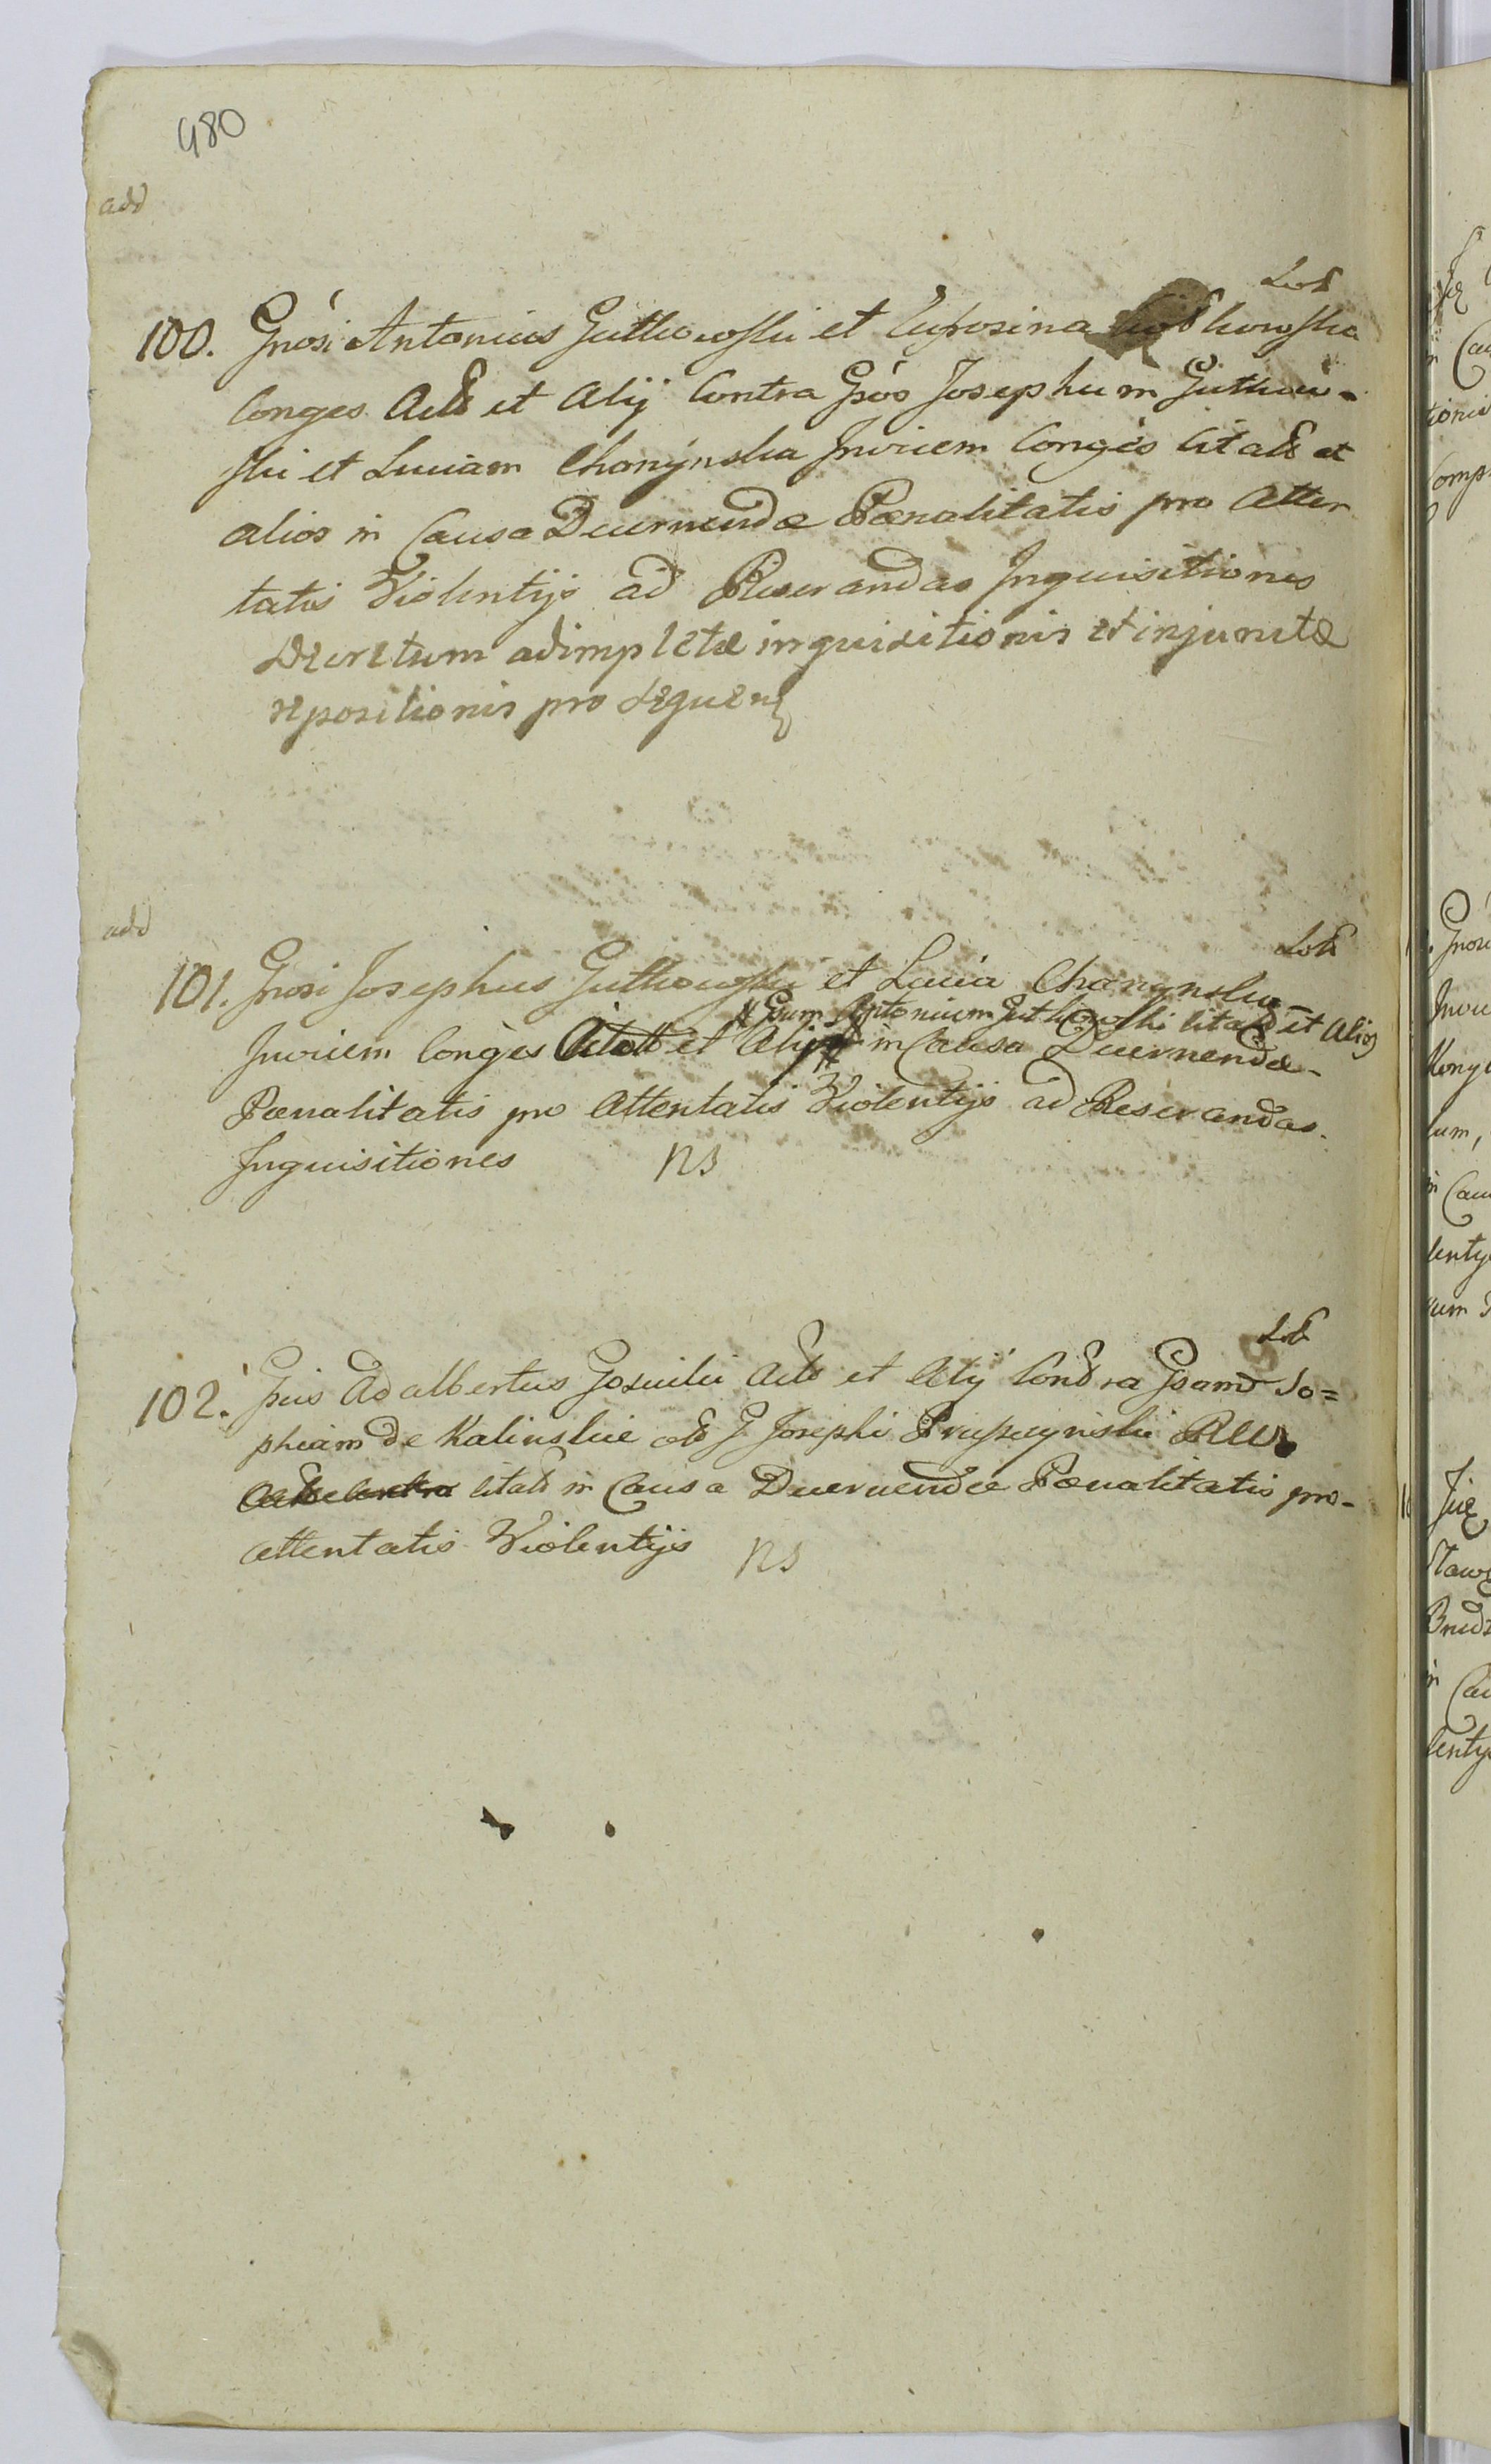 480
add
Lok
100. Gnosi Antonius Gutkowski et Eufrosina howska
Conges Actt et Alij Contra Gsos Josephum Gutkow-
ski et Luciam Chonÿnska Invicem Conges Citatt et
alios in Causa Decernendæ Pœnalitatis pro Atten
tatis Violentijs ad Reserandas Inquisitiones
Decretum adimpletæ inquisitionis et injunctæ
repositionis pro sequen
add
Lok
101. Gnosi Josephus Gutkowski et Lucia Chonynska
# Gsum Antonium Gutkowski Citatt et Alios
Invicem Conges Citatt et Alij # in Causa Decernendæ
Pœnalitatis pro Attentatis Violentijs ad Reserandas
Inquisitiones ns
Lok
102. Gsus Adalbertus Goscicki Actt et Alij Contra Gsam So=
phiam de Kalinskie G Josephi
Citatt in Causa Decernendæ Pœnalitatis pro
attentatis Violentijs ns